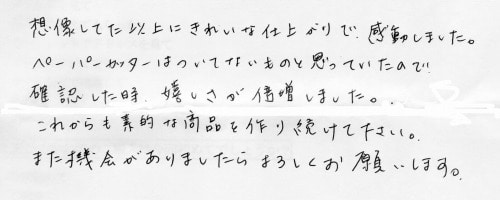 想像してた以上にきれいな仕上がりで、感動しました。
ペーパーカッターはついてないものと思っていたので
確認した時、嬉しさが倍増しました。
これからも素的な商品を作り続けて下さい。
また機会がありましたらよろしくお願いします。